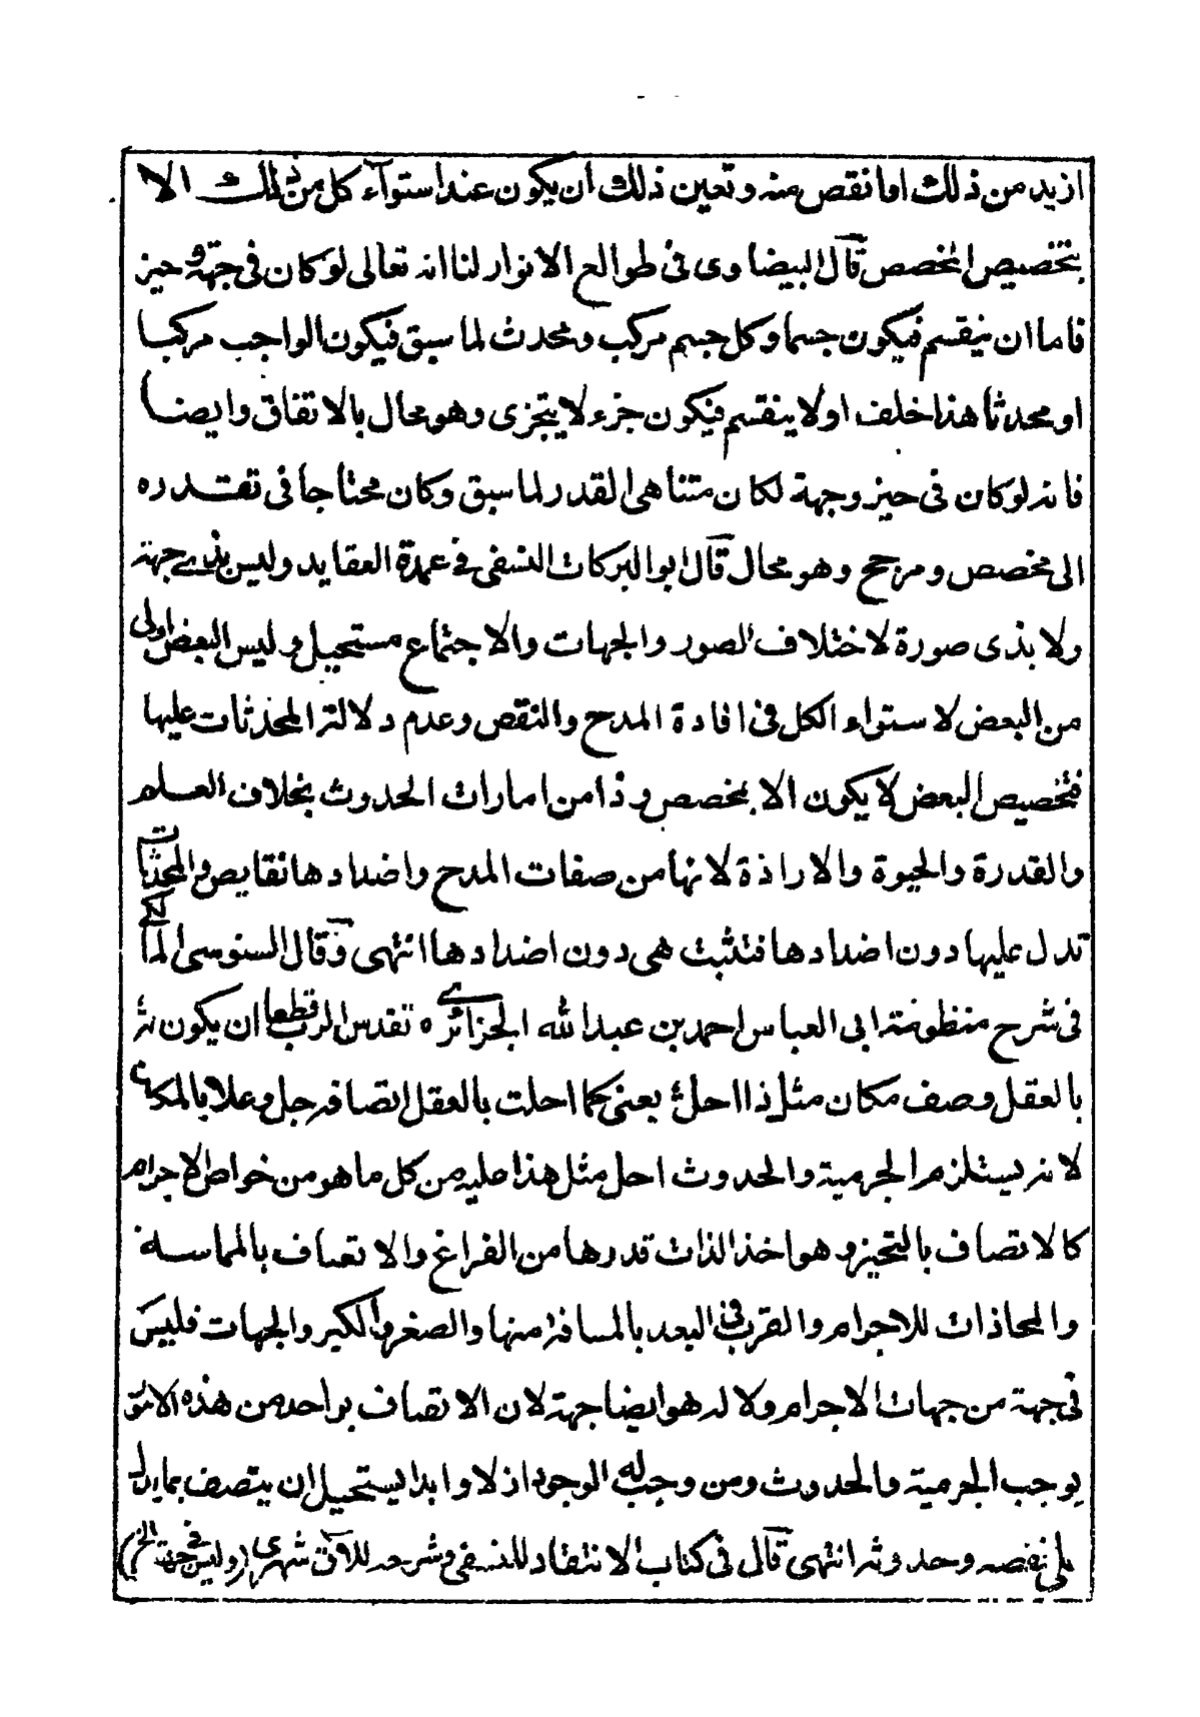 ازيد من ذلك او انقص منه وتعين ذلك ان يكون عند استوآء كل من ذلك الا
بتخصيص المخصص قال البيضاوى فى طوالع الانوار لنا انه تعالى لو كان فى جهة وحيز
فاما ان ينقسم فيكون جسما وكل جسم مركب ومحدث لما سبق فيكون الواجب مركبا
او محدثا هذا خلف او لا ينقسم فيكون جزء لا يتجزى وهو محال بالاتفاق وايضا
فانه لو كان فى حيز وجهة لكان متناهى القدر لما سبق وكان محتاجا فى تقدره
الى مخصص ومرجح وهو محال قال ابو البركات النسفى فى عمدة العقايد وليس بذى جهة
ولا بذى صورة لاختلاف الصور والجهات والاجتماع مستحيل وليس البعض اولى
من البعض لاستواء الكل فى افادة المدح والنقص وعدم دلالة المحدثات عليها
فتخصيص البعض لا يكون الا بمخصص وذا من امارات الحدوث بخلاف العلم
والقدرة والحيوة والارادة لانها من صفات المدح واضدادها نقايص والمحدثات
تدل عليها دون اضدادها فتثبت هى دون اضدادها انتهى وقال السنوسى المالكى
فى شرح منظومة ابى العباس احمد بن عبد الله الجزائرى ه تقدس الرب قطعا ان يكون له
بالعقل وصف مكان مثل ذا احل يعنى كما احلت بالعقل اتصافه جل وعلا بالمكان
لانه يستلزم الجرمية والحدوث احل مثل هذا عليه من كل ما هو من خواص الاجرام
كالاتصاف بالتحيز وهو اخذ الذات قدرها من الفراغ والاتصاف بالمماسة
والمحاذات للاجرام والقرب فى البعد بالمسافة منها والصغر والكبر والجهات فليس
فى جهة من جهات الاجرام ولا له هو ايضا جهة لان الاتصاف بواحد من هذه الامور
يوجب الجرمية والحدوث ومن وجب له الوجود ازلا وابدا يستحيل ان يتصف بما يدل
على نقصه وحدوثه انتهى قال فى كتاب الانتقاد للنسفى وشرحه للآق شهرى (وليس فى جهة الخ)